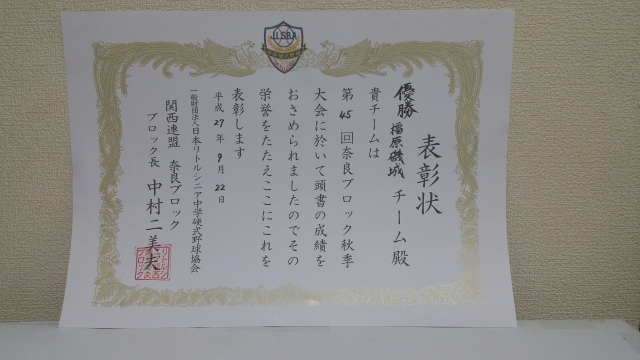 JLSBA
表彰状
優勝 橿原磯城 チーム殿
貴チームは
第45回奈良ブロック秋季
大会に於いて頭書の成績を
おさめられましたのでその
栄誉をたたえここにこれを
表彰します
平成27年9月22日
一般財団法人日本リトルシニア中学硬式野球協会
関西連盟 奈良ブロック
ブロック長 中村二美夫